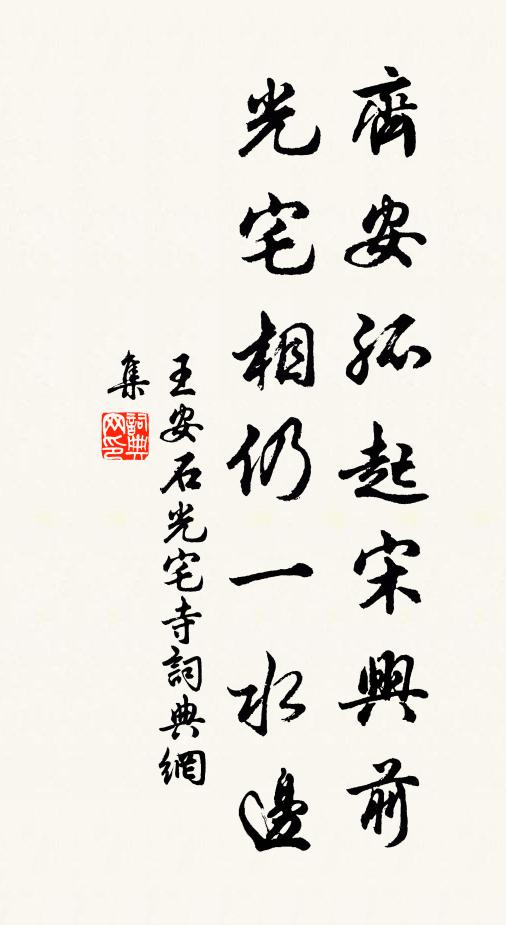 齊安孤起宋興前
光宅相仍一水邊
王安石光宅寺詞典網
集
詞典網印